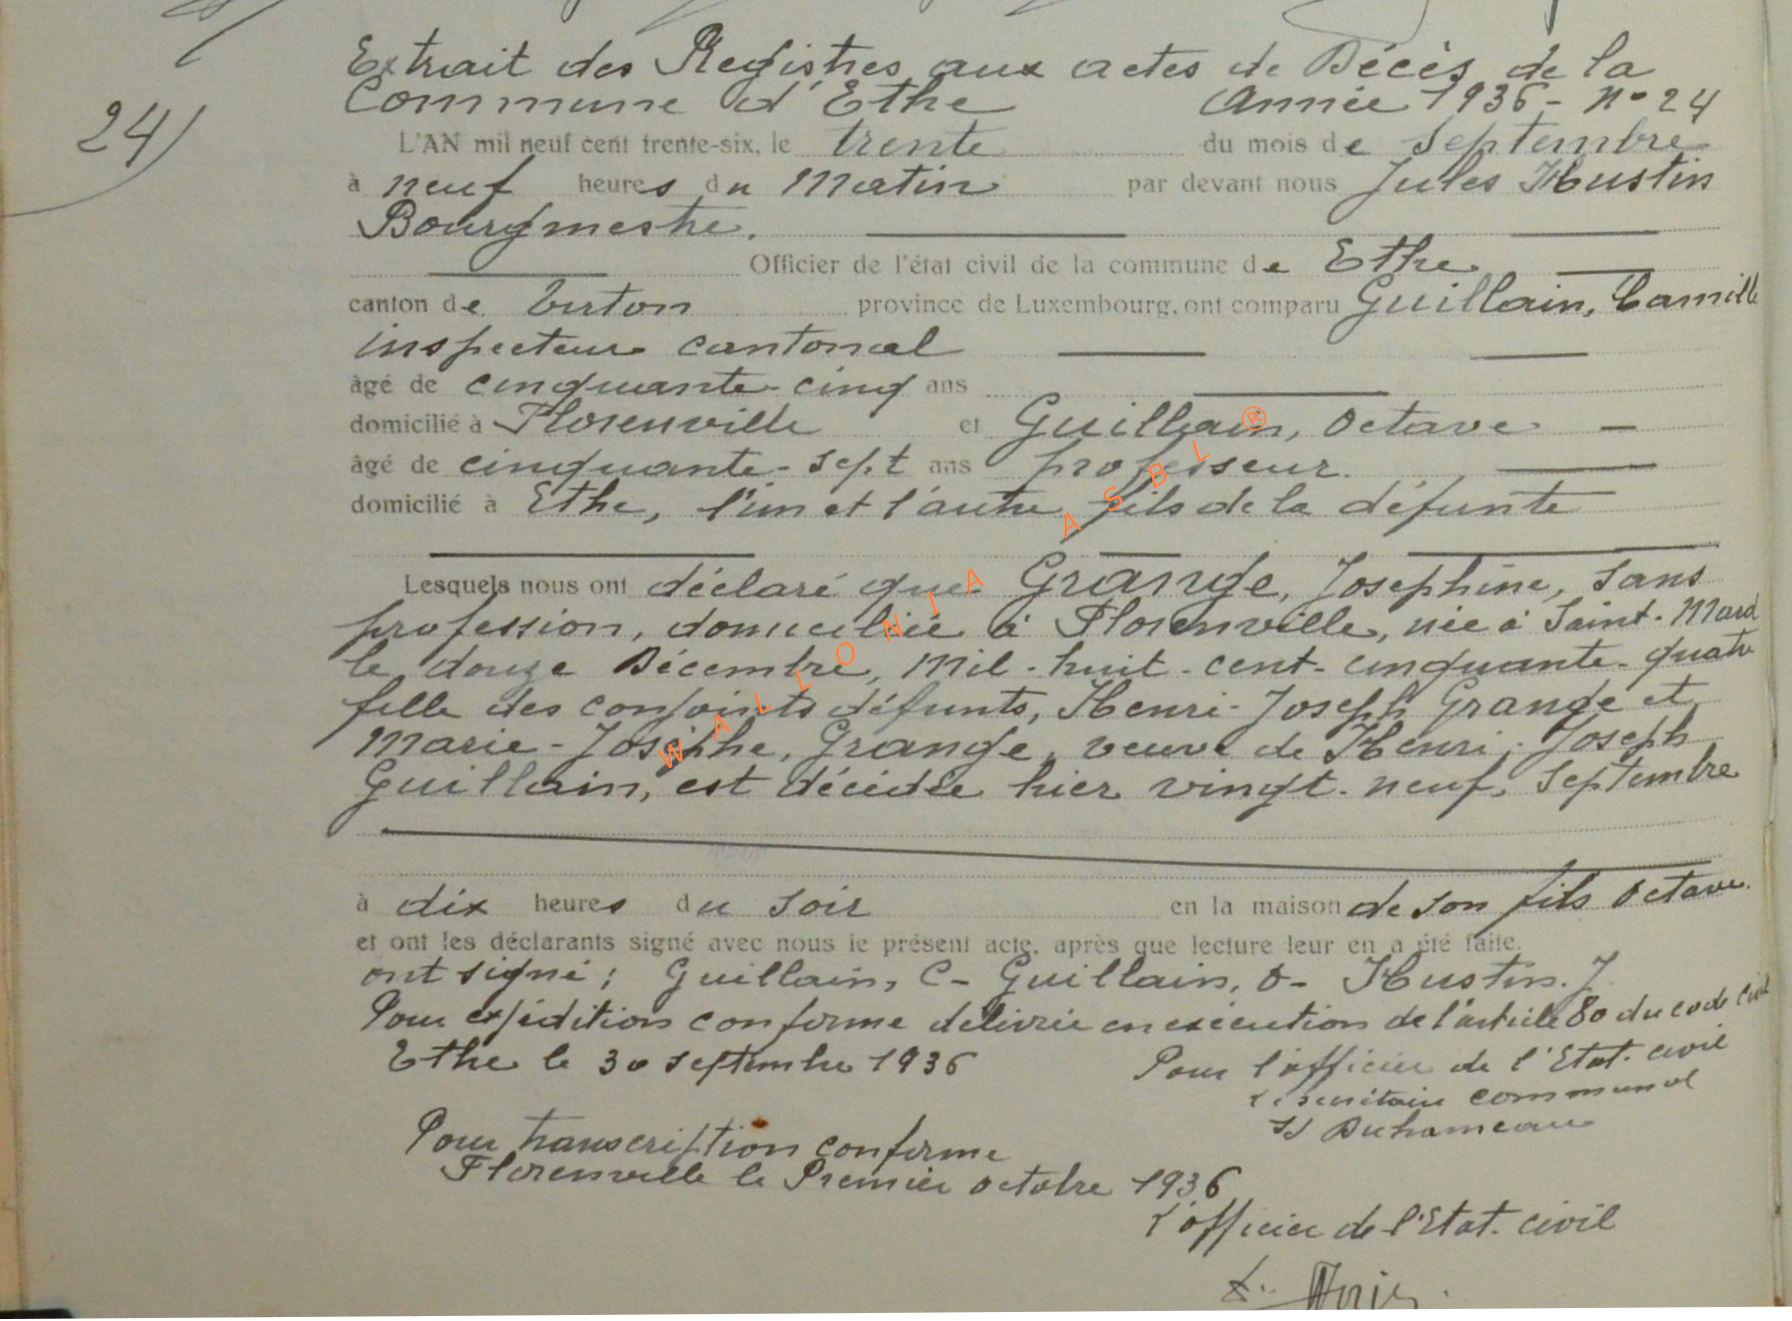 Extrait des Registres aux actes de Décès de la
Commune d'Ethe Année 1936 - n° 24
24)
L'AN mil neuf cent trente-six, le trente du mois de Septembre
à neuf heures du Matin par devant nous Jules Hustin
Bourgmestre.
Officier de l'état civil de la commune de Ethe
canton de Virton province de Luxembourg, ont comparu Guillain, Camille
inspecteur cantonal
âgé de cinquante-cinq ans
domicilié à Florenville et Guillain, Octave
âgé de cinquante-sept ans professeur
domicilié à Ethe, l'un et l'autre fils de la défunte
Lesquels nous ont déclaré que Grange, Josephine, sans
profession, domiciliée à Florenville, née à Saint-Mard
le douze Décembre, Mil-huit-cent-cinquante-quatre
fille des conjoints défunts, Henri-Joseph Grange et
Marie-Josèphe, Grange, veuve de Henri-Joseph
Guillain, est décédée hier vingt-neuf, Septembre
à dix heures du Soir en la maison de son fils Octave.
et ont les déclarants signé avec nous le présent acte, après que lecture leur en a été faite.
ont signé; Guillain, C- Guillain, O- Hustin. J
Pour expédition conforme délivrée en exécution de l'article 80 du code civil
Ethe le 30 septembre 1936 Pour l'officier de l'Etat-civil
Le secrétaire communal
S/ Duhameau
Pour transcription conforme
Florenville le Premier octobre 1936
L'officier de l'Etat-civil
WALLONIA ASBL ®